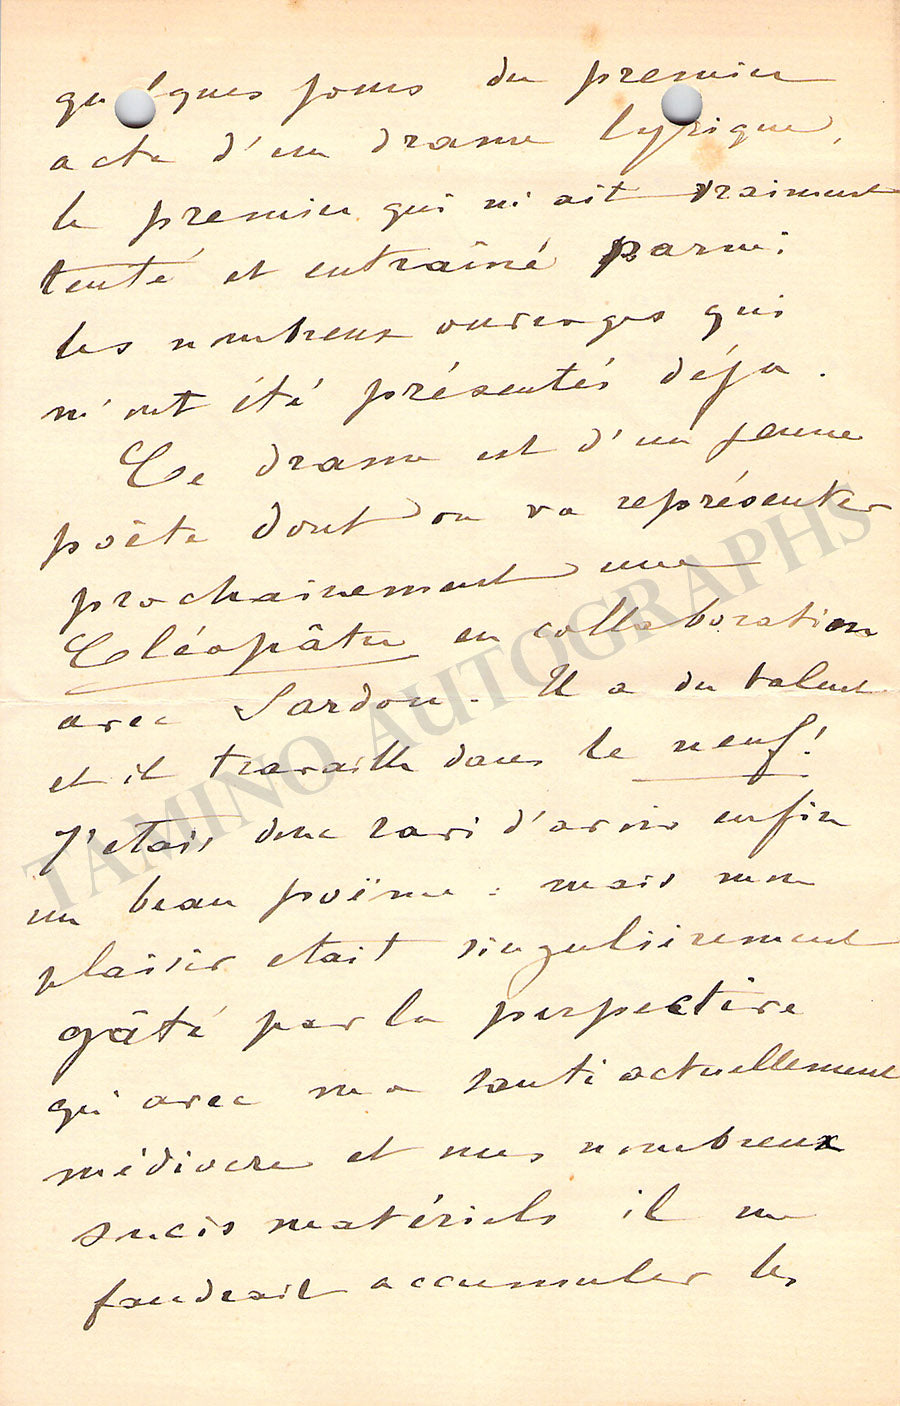 quelques jours du premier
acte d'un drame lyrique,
le premier qui m'ait vraiment
tenté et entraîné parmi
les nombreux ouvrages qui
m'ont été présentés déjà.
Ce drame est d'un jeune
poète dont on va représenter
prochainement une
Cléopâtre en collaboration
avec Sardou. Il a du talent
et il travaille dans le neuf!
J'etais donc ravi d'avoir enfin
un beau poëme : mais mon
plaisir etait singulièrement
gâté par la perspective
qu'avec ma santé actuellement
médiocre et mes nombreux
soucis matériels il me
faudrait accumuler les
TAMINO AUTOGRAPHS